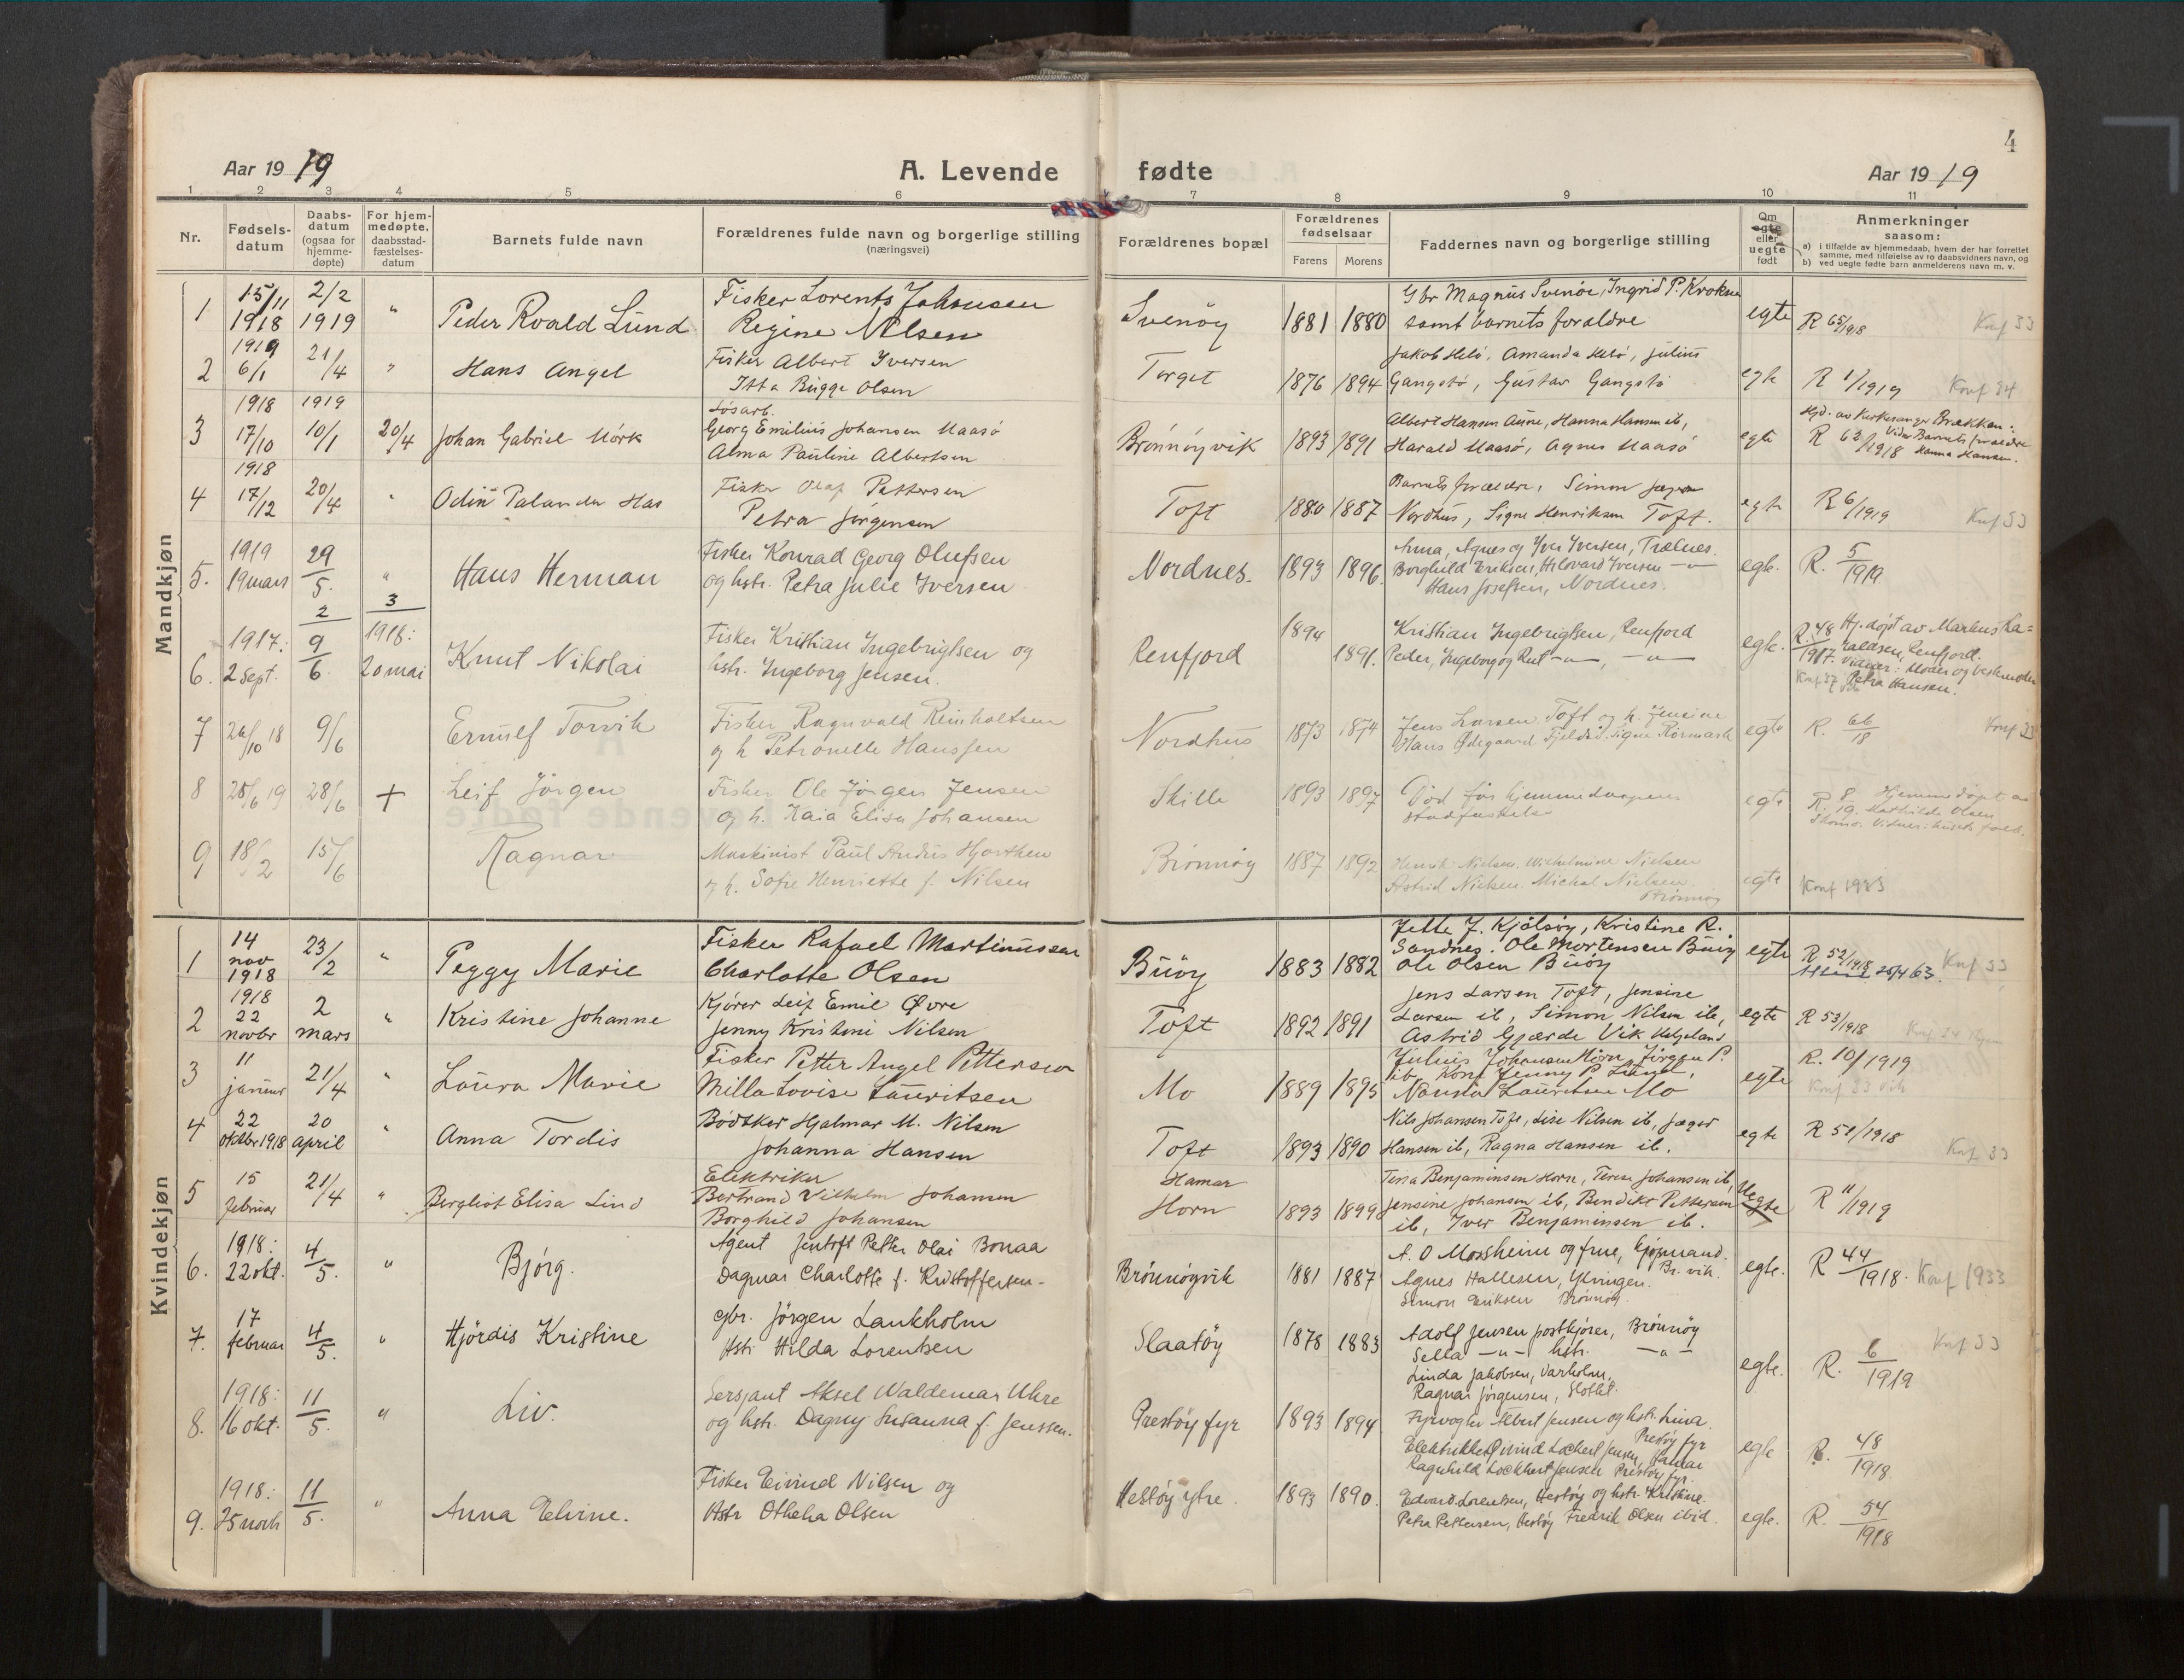 4
Aar 1919
A. Levende
fødte
Aar 1919
1 2 3 4 5 6 7 8 9 10 11
Nr.
Fødsels-
datum
Daabs-
datum
(ogsaa for
hjemme-
døpte)
For hjem-
medøpte,
daabsstad-
fæstelses-
datum
Barnets fulde navn
Forældrenes fulde navn og borgerlige stilling
(næringsvei)
Forældrenes bopæl
Forældrenes
fødselsaar
Farens Morens
Faddernes navn og borgerlige stilling
Om
egte
eller
uegte
født
Anmerkninger
saasom:
a) i tilfælde av hjemmedaab, hvem der har forrettet
samme, med tilføielse av to daabsvidners navn, og
b) ved uegte fødte barn anmelderens navn m. v.
Mandkjøn
1 15/11 1918 2/2 1919 " Peder Roald Lund
Fisker Lorents Johansen
Regine Nilsen
Svenøy 1881 1880
Gbr Magnus Svenøe, Ingrid P.
samt barnets foraldre
egte R 65/1918 Knf 33
2 1919 6/1 21/4 " Hans Angel
Fisker Albert Iversen
Itta Bugge Olsen
Torget 1876 1894
Jakob Helø, Amanda Helø, Julius
Gangstø, Gustav Gangstø
egte R 1/1919 Konf 34
3 1918 17/10 1919 10/1 20/4 Johan Gabriel Mørk
Løsarb.
Georg Emilius Johansen Maasø
Alma Pauline Albertsen
Brønnøyvik 1893 1891
Albert Hansen Aune, Hanna Hansen ib,
Harald Maasø, Agnes Maasø
egte R 62/1918
Hjd. av Kirkesanger Brækkan:
Vidn Barnets forældre
Hanna Hansen.
4 1918 17/12 20/4 " Odin Palander Has
Fisker Olaf Pettersen
Petra Jørgensen
Toft 1880 1887
Barnets forældre, Simon
Nordhus, Signe Henriksen Toft.
egte R 6/1919 Knf 33
5. 1919 19 mars 29/5. " Hans Herman
Fisker Konrad Georg Olufsen
og hstr. Petra Julie Iversen
Nordnes. 1893 1896.
Anna, Agnes og Iver Iversen, Trælnes.
Borghild Eriksen, Halvard Iversen -"-
Hans Josefsen, Nordnes.
egte. R. 5/1919
2 3
6. 1917: 2 Sept. 9/6 1918: 20 mai Knut Nikolai
Fisker Kristian Ingebrigtsen og
hstr. Ingeborg Jensen.
Renfjord 1894 1891.
Kristian Ingebrigtsen, Renfjord
Peder, Ingeborg og Reit -"-, -"-
egte. R. 48/1917.
Hj. døpt av Markus Ha=
raldsen, Renfjord.
Vidner: Moder og bestemoder
Petra Hansen.
Konf 37 Vik
7 26/10 18 9/6 Ernulf Torvik
Fisker Ragnvald Reinholtsen
og h Petronelle Hanssen
Nordhus 1873 1874
Jens Larsen Toft og h. Jensine
Hans Ødegaard Fjeldsø. Signe Rørmark
egte R. 66/18 Konf 33
8 28/6 19 28/6 + Leif Jørgen
Fisker Ole Jørgen Jensen
og h. Kaia Elisa Johansen
Skille 1893 1897
Død før hjemmedaapens
stadfæstelse
egte R. 8/19. Hjemmedøpt av
Mathilde Olsen
9 18/2 15/6 Ragnar
Maskinist Paul Andreas Hjorthen
og h. Sofie Henriette f. Nilsen
Brønnøy 1887 1892
Henrik Nielsen. Wilhelmine Nielsen
Astrid Nielsen. Michal Nielsen.
Brønnøy
egte Konf 1933
Kvindekjøn
1 14 nov 1918 23/2 " Peggy Marie
Fisker Rafael Martinussen
Charlotte Olsen
Buøy 1883 1882
Jette J. Kjølsøy, Kristine R.
Sandnes. Ole Mortensen Buøy
Ole Olsen Buøy
egte R 52/1918 Knf 33
25/4 63.
2 1918 22 novbr 2 mars " Kristine Johanne
Kjører Leif Emil Øvre
Jenny Kristine Nilsen
Toft 1892 1891
Jens Larsen Toft, Jensine
Larsen ib, Simon Nilsen ib,
Astrid Gjærde Vik Helgeland
egte R 53/1918
3 11 januar 21/4 " Laura Marie
Fisker Petter Angel Pettersen
Milla Lovise Lauritsen
Mo 1889 1895
Julius Johansen Horn, Jørgen P.
ib, Konf Jenny P Lund,
Nanna Lauritsen Mo
egte R. 10/1919
Konf 33 Vik
4 22 oktbr 1918 20 april " Anna Tordis
Bødtker Hjalmar M. Nilsen
Johanna Hansen
Toft 1893 1890
Nils Johansen Toft, Lise Nilsen ib, Jæger
Hansen ib, Ragna Hansen ib.
egte R 51/1918 Knf 33
5 15 februar 21/4 " Bergliot Elisa Lind
Elektriker
Bertrand Vilhelm Johansen
Borghild Johansen
Hamar
Horn 1893 1899
Tena Benjaminsen Horn, Terese Johansen ib,
Jensine Johansen ib, Bendikt Pettersen
ib, Iver Benjaminsen ib.
Uegte R 11/1919
6. 1918: 22 okt. 4/5. " Bjørg.
Agent Jentoft Petter Olai Bonaa
Dagmar Charlotte f. Kristoffersen-
Brønnøyvik 1881 1887
A. O Mossheim og frue, kjøpmand.
Br. vik.
Agnes Hallesen, Yttringen.
Simon Eriksen Brønnøy.
egte. R 44/1918. Konf 1933
7. 17 februar 4/5. " Hjördis Kristine
gbr. Jörgen Lankholm
Hstr Hilda Lorentsen
Slaatøy 1878 1883
Adolf Jensen postkjører, Brønnøy
Sella -"- hstr. -"-
Linda Jakobsen, Varholm.
Ragnar Jørgensen,
egte. R. 6/1919 Knf 33
8. 1918: 16 okt. 11/5. " Liv.
Sersjant Aksel Waldemar Uhre
og hstr. Dagny Susanna f. Jenssen.
Prestøy fyr 1893 1894
Fyrvogter Albert Jensen og hstr. Lina
Prestøy fyr
Elektriker Eivind Lockert Jensen, Hamar
Ragnhild Lockhert Jensen Prestøy fyr.
egte R. 48/1918.
9. 1918: 25 novb 11/5. " Anna Elvine.
Fisker Eivind Nilsen og
Hstr Othelia Olsen
Hestøy ytre. 1893 1890.
Edvard Lorentsen, Hestøy og hstr. Kristine.
Petra Pettersen, Hestøy Fredrik Olsen ibid.
egte. R. 54/1918